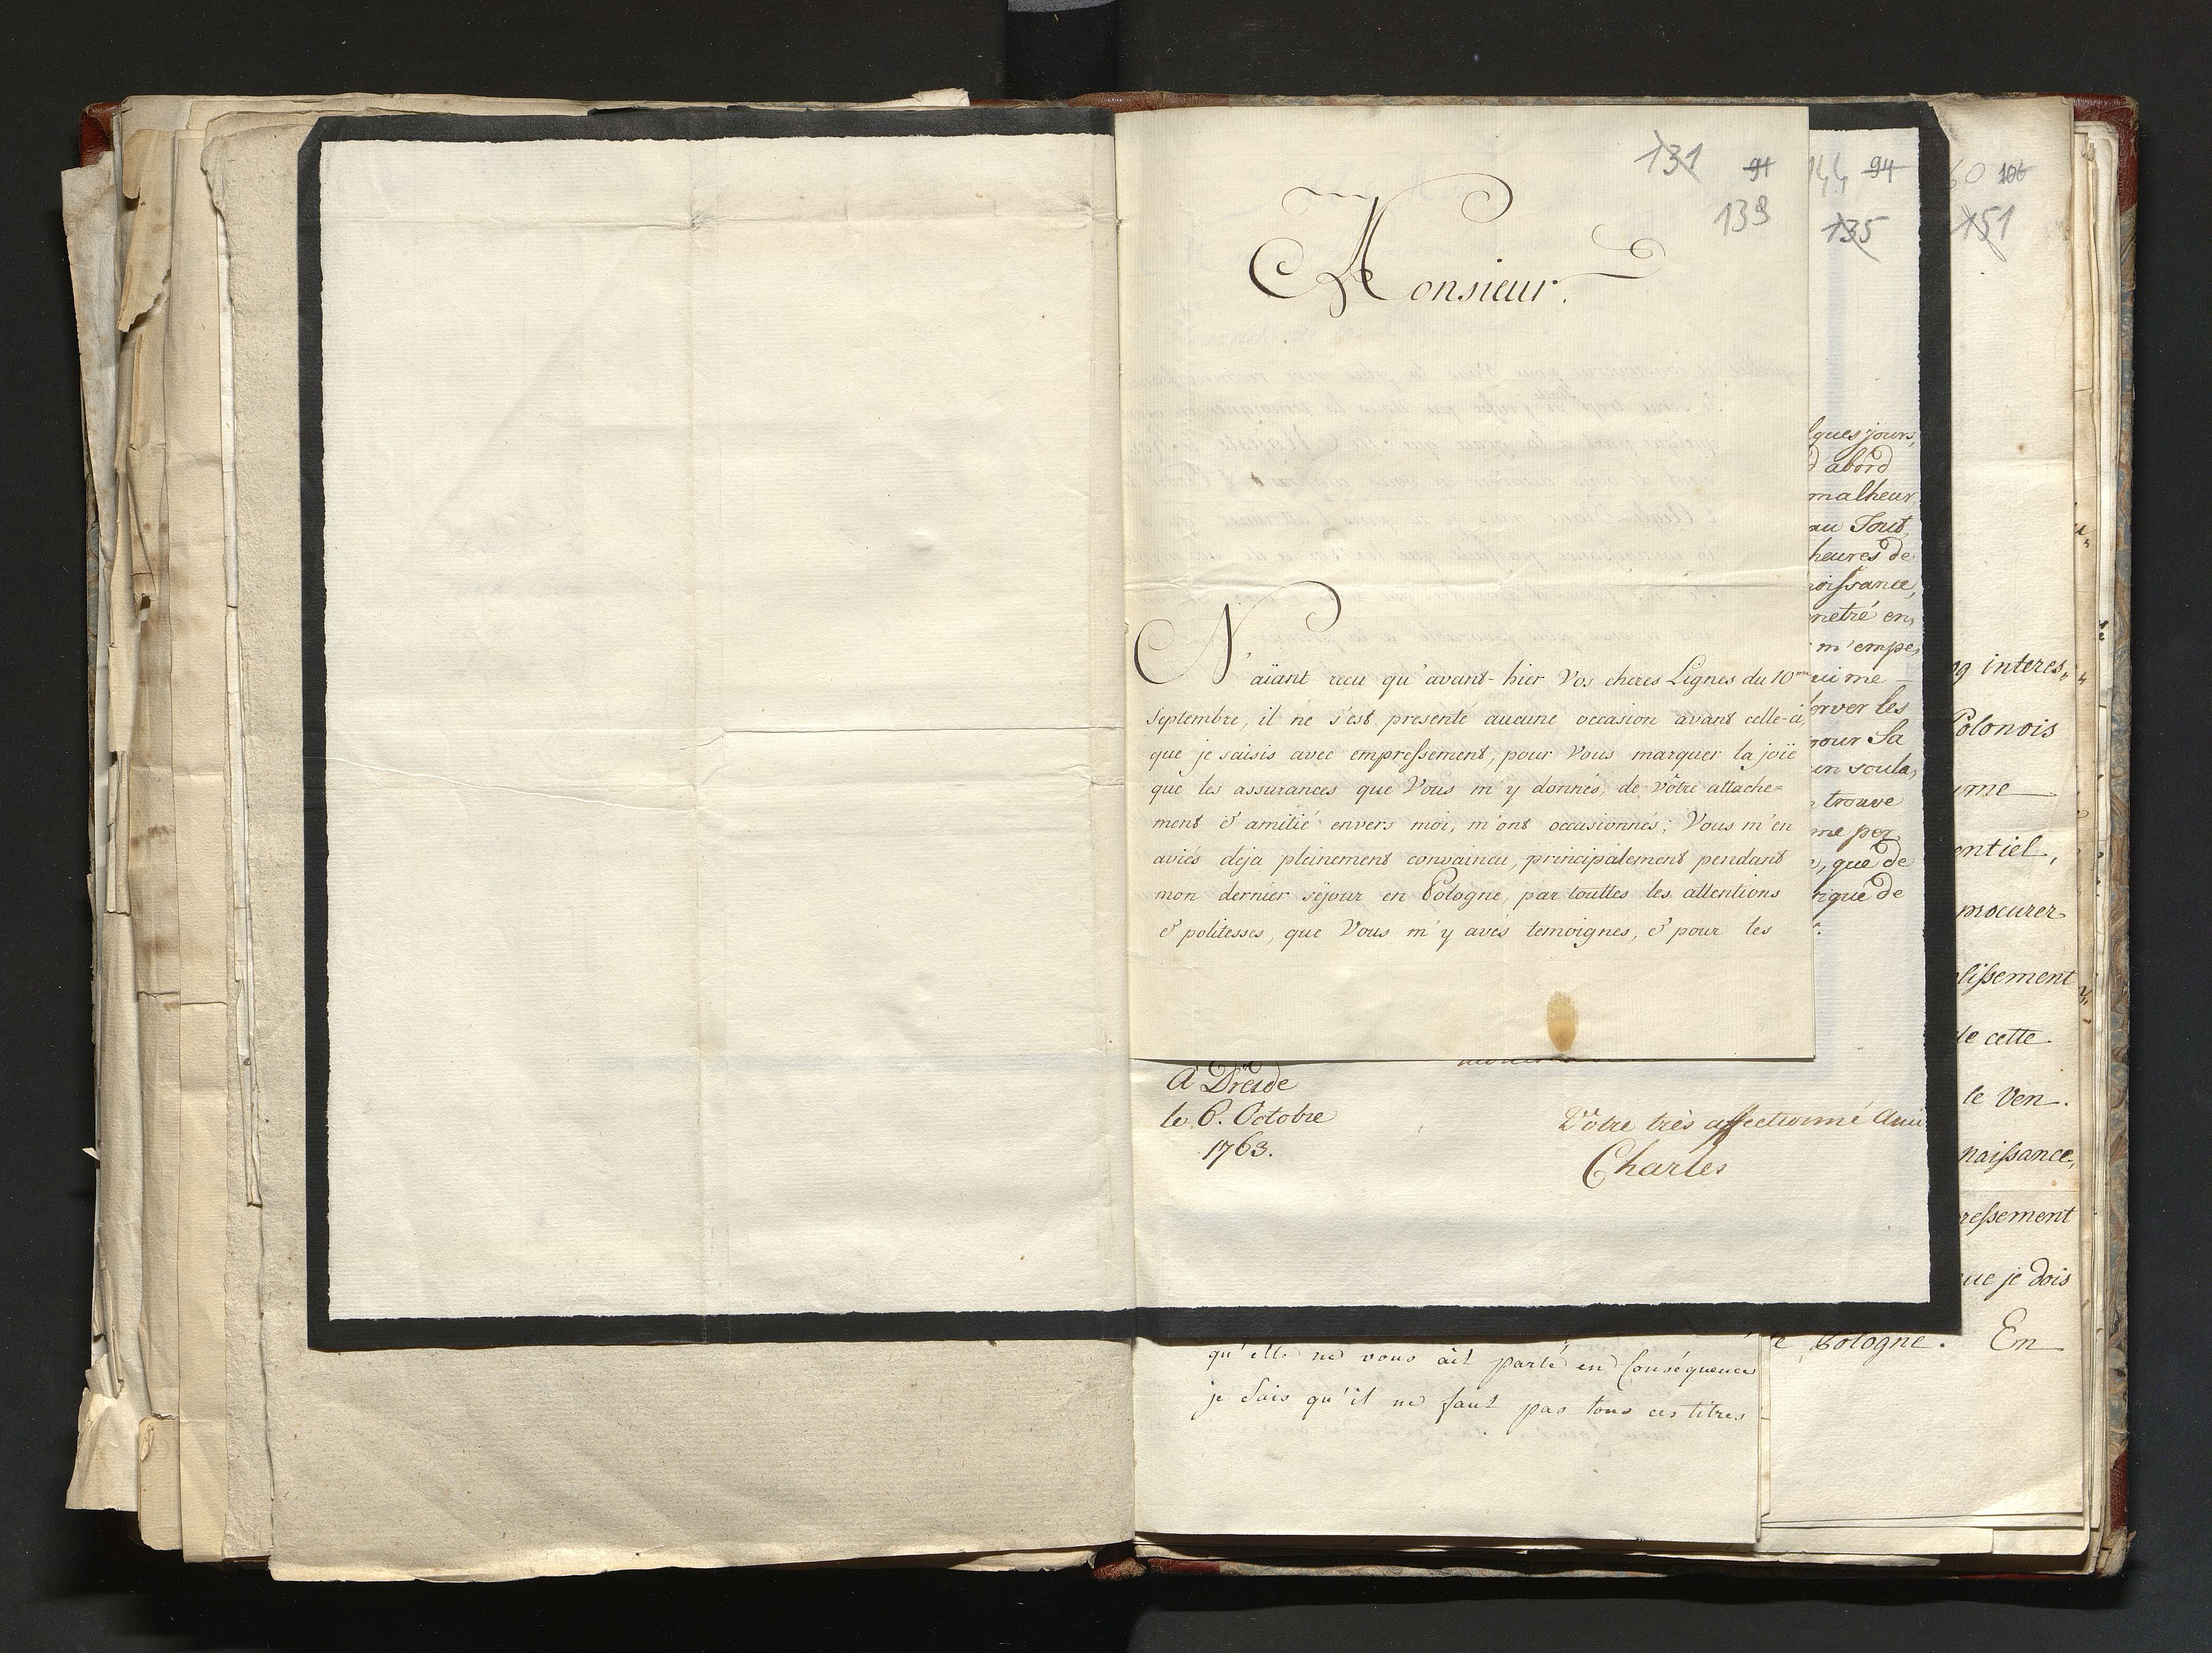 131 91
139
Monsieur.
N'aïant recu qu'avant-hier Vos cheres Lignes du 10me
Septembre, il ne s'est presenté aucune occasion avant celle-ci,
que je saisis avec empressement, pour Vous marquer la joïe
que les assurances que Vous m'y donnés, de vôtre attache=
ment & amitié envers moi, m'ont occasionnés; Vous m'en
aviés deja pleinement convaincu, principalement pendant
mon dernier sejour en Pologne, par touttes les attentions
& politesses, que Vous m'y avés temoignés, & pour les
144 94
135
lques jours,
d'abord
malheur,
au Tout,
heures de
noissance,
netré en,
m'empe,
ui me
erver les
pour Sa
un soula,
trouve
me per
, que de
rique de
A Dresde
le 6. Octobre
1763.
Vôtre très affectionné Ami
Charles
60 106
151
ng interes,
Polonois
me
entiel,
procurer
lissement
de cette
le Ven.
naissance,
ressement
que je dois
e Pologne. En
qu'elle ne vous ait parlé en Conséquence
je sais qu'il ne faut pas tous ces titres